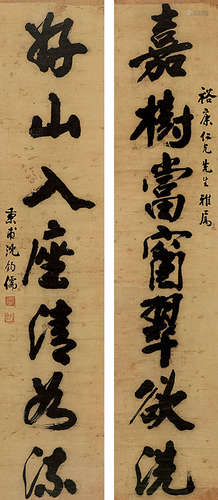 嘉樹當窗翠欲洗
裕康仁兄先生雅屬
好山入座清如流
秉甫沈鈞儒